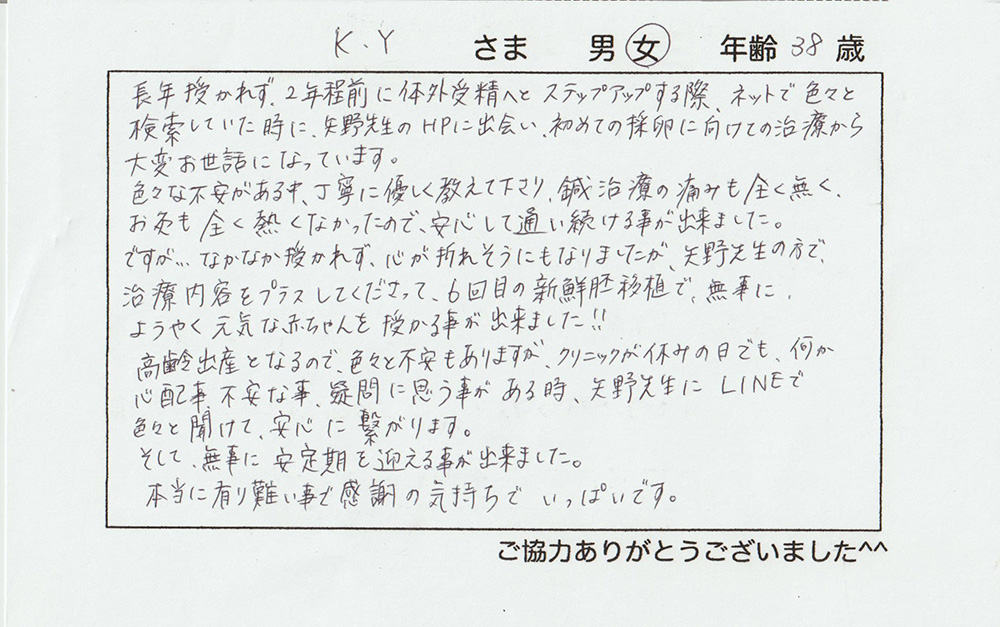 K.Y さま 男 女 年齢 38 歳
長年授かれず、2年程前に体外受精へとステップアップする際、ネットで色々と
検索していた時に、矢野先生のHPに出会い、初めての採卵に向けての治療から
大変お世話になっています。
色々な不安がある中、丁寧に優しく教えて下さり、鍼治療の痛みも全く無く、
お灸も全く熱くなかったので、安心して通い続ける事が出来ました。
ですが…なかなか授かれず、心が折れそうにもなりましたが、矢野先生の方で、
治療内容をプラスしてくださって、6回目の新鮮胚移植で、無事に、
ようやく元気な赤ちゃんを授かる事が出来ました!!
高齢出産となるので、色々と不安もありますが、クリニックが休みの日でも、何か
心配事、不安な事、疑問に思う事がある時、矢野先生にLINEで
色々と聞けて、安心に繋がります。
そして、無事に安定期を迎える事が出来ました。
本当に有り難い事で感謝の気持ちでいっぱいです。
ご協力ありがとうございました^^